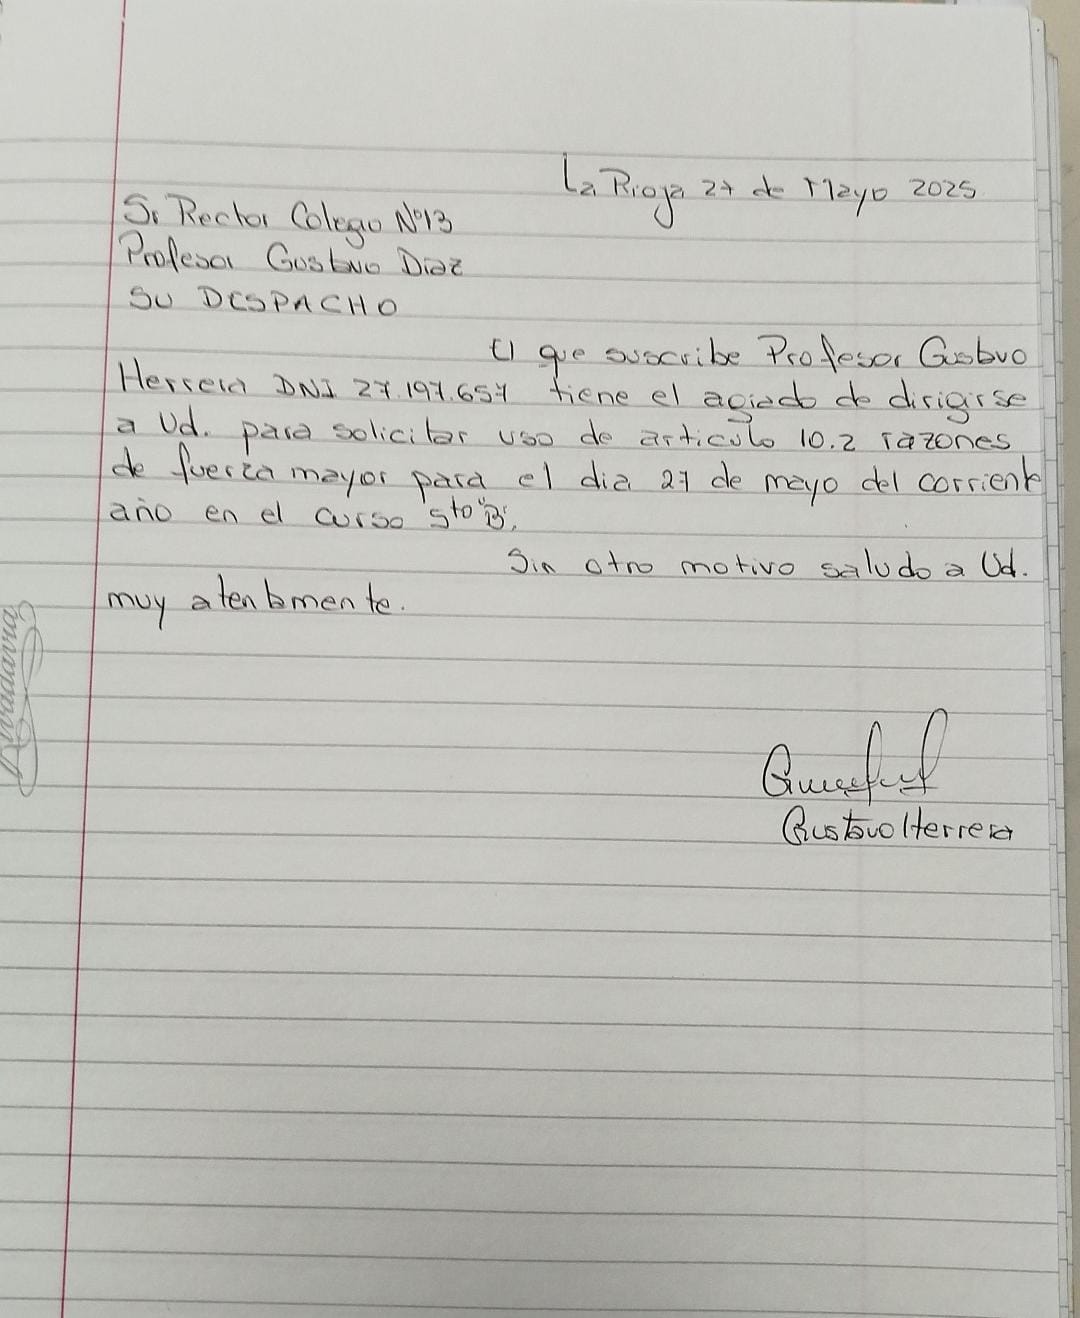 La Rioja 27 de Mayo 2025
Sr Rector Colegio Nº13
Profesor Gustavo Diaz
SU DESPACHO
El que suscribe Profesor Gustavo
Herrera DNI 27.197.657 tiene el agrado de dirigirse
a Ud. para solicitar uso de articulo 10.2 razones
de fuerza mayor para el dia 27 de mayo del corriente
año en el curso 5to "B".
Sin otro motivo saludo a Ud.
muy atentamente.
Gustavo Herrera
Rivadavia